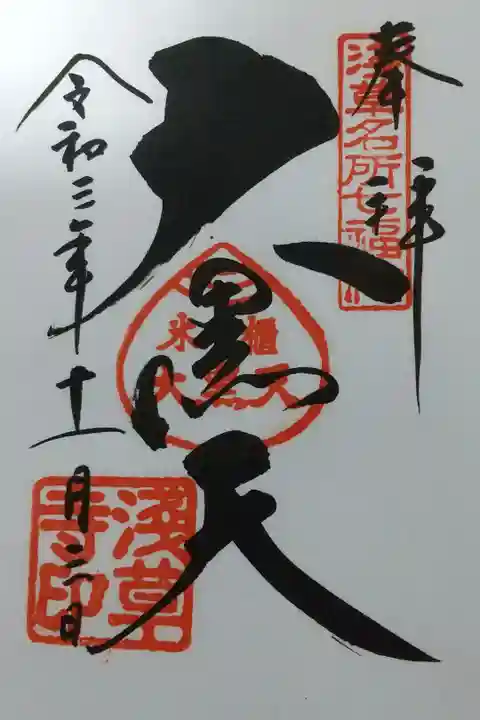 奉拝
浅草名所七福
大黒天
米櫃
大黒天
令和三年十一月二日
浅草
寺印